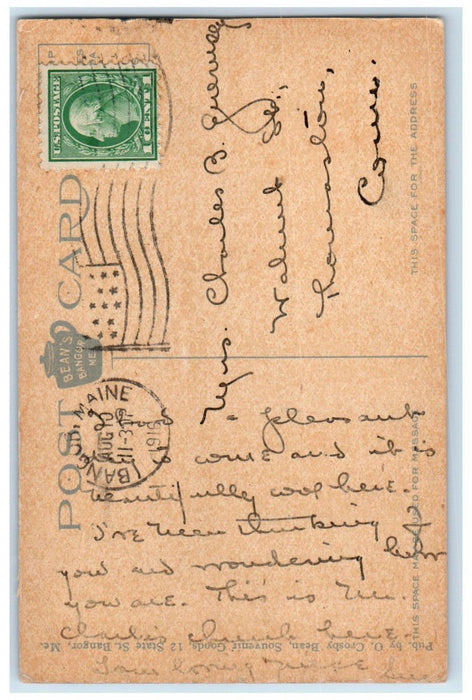 U.S. POSTAGE
1 CENT 1
POST CARD
BEAN'S
BANGOR
ME.
BANGOR, MAINE
AUG 10
11-30P
1916
THIS SPACE FOR THE ADDRESS
Mrs. Charles B.
Walnut St.,
Thomaston,
Conn.
THIS SPACE MAY BE USED FOR MESSAGE
a pleasant
come and it is
beautifully cool here.
I've been thinking of
you and wondering how
you are. This is Mr.
Charlie's church here.
Your loving niece
Pub. by O. Crosby Bean, Souvenir Goods, 12 State St. Bangor, Me.